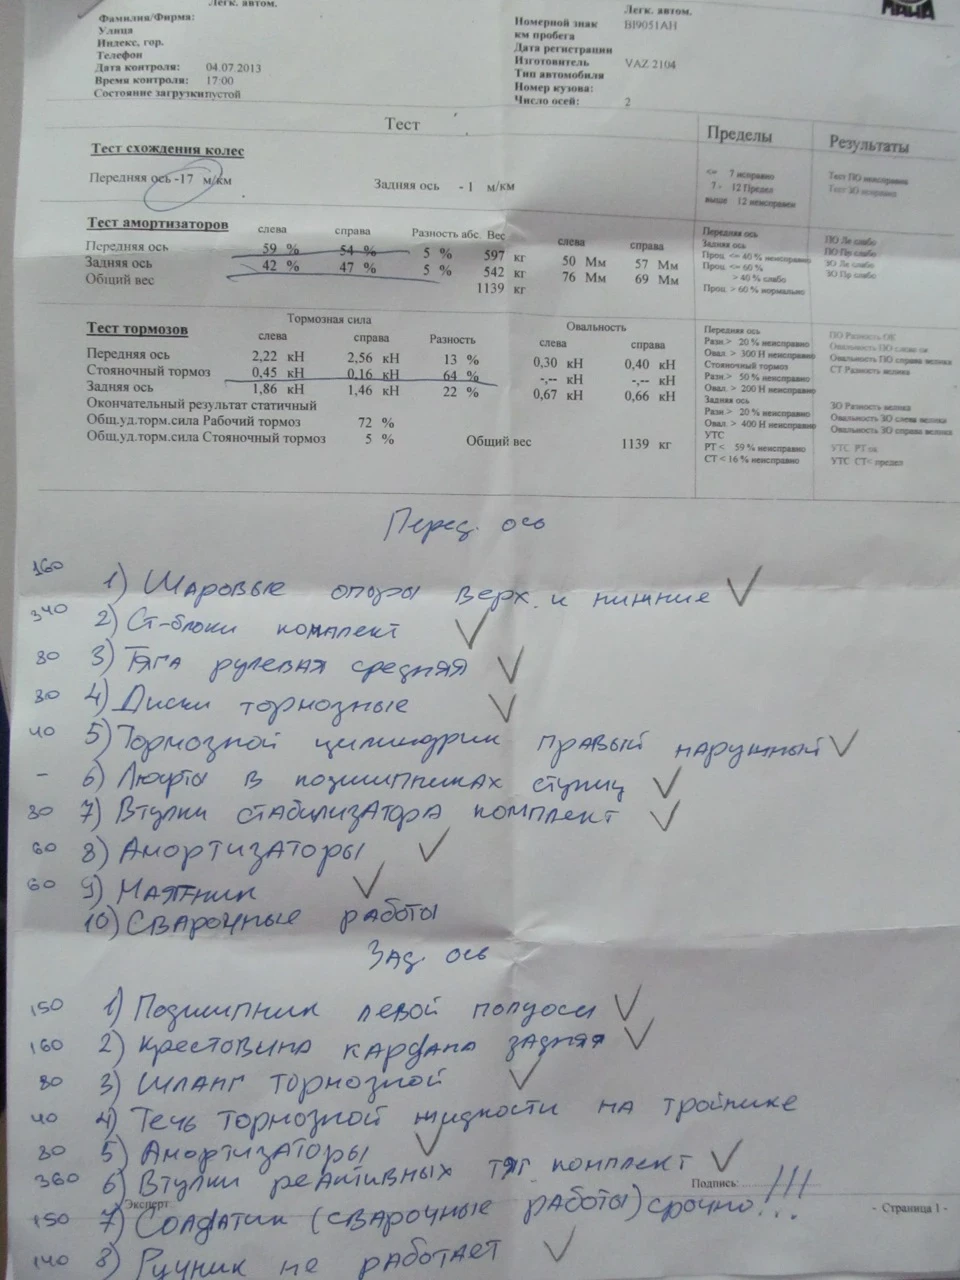 Легк. автом.
Фамилия/Фирма:
Улица
Индекс, гор.
Телефон
Дата контроля: 04.07.2013
Время контроля: 17:00
Состояние загрузки пустой
Легк. автом.
Номерной знак BI9051AH
км пробега
Дата регистрации
Изготовитель VAZ 2104
Тип автомобиля
Номер кузова:
Число осей: 2
МАНА
Тест Пределы Результаты
Тест схождения колес
Передняя ось -17 м/км Задняя ось - 1 м/км
<= 7 исправно Тест ПО неисправно
7 - 12 Предел Тест ЗО исправно
выше 12 неисправен
Тест амортизаторов слева справа Разность абс. Вес слева справа
Передняя ось 59 % 54 % 5 % 597 кг 50 Мм 57 Мм
Задняя ось 42 % 47 % 5 % 542 кг 76 Мм 69 Мм
Общий вес 1139 кг
Передняя ось ПО Ле слабо
Задняя ось ПО Пр слабо
Проц. <= 40 % неисправно ЗО Ле слабо
Проц. <= 60 % ЗО Пр слабо
> 40 % слабо
Проц. > 60 % нормально
Тест тормозов Тормозная сила Овальность
слева справа Разность слева справа
Передняя ось 2,22 кН 2,56 кН 13 % 0,30 кН 0,40 кН
Стояночный тормоз 0,45 кН 0,16 кН 64 % -,-- кН -,-- кН
Задняя ось 1,86 кН 1,46 кН 22 % 0,67 кН 0,66 кН
Окончательный результат статичный
Общ.уд.торм.сила Рабочий тормоз 72 %
Общ.уд.торм.сила Стояночный тормоз 5 % Общий вес 1139 кг
Передняя ось ПО Разность ОК
Разн.> 20 % неисправно Овальность ПО слева ок
Овал. > 300 Н неисправно Овальность ПО справа велика
Стояночный тормоз СТ Разность велика
Разн.> 50 % неисправно
Овал. > 200 Н неисправно
Задняя ось ЗО Разность велика
Разн.> 20 % неисправно Овальность ЗО слева велика
Овал. > 400 Н неисправно Овальность ЗО справа велика
УТС
РТ < 59 % неисправно УТС РТ ок
СТ < 16 % неисправно УТС СТ< предел
Перед. ось
160 1) Шаровые опоры верх. и нижние
340 2) Ст-блоки комплект
80 3) Тяга рулевая средняя
80 4) Диски тормозные
40 5) Тормозной цилиндрик правый наружный
- 6) Люфты в подшипниках ступиц
80 7) Втулки стабилизатора комплект
60 8) Амортизаторы
60 9) Маятник
10) Сварочные работы
Зад. ось
150 1) Подшипник левой полуоси
160 2) Крестовина кардана задняя
80 3) Шланг тормозной
40 4) Течь тормозной жидкости на тройнике
80 5) Амортизаторы
360 6) Втулки реактивных тяг комплект
Подпись:
Эксперт - Страница 1 -
150 7) Солдатик (сварочные работы) срочно!!!
140 8) Ручник не работает